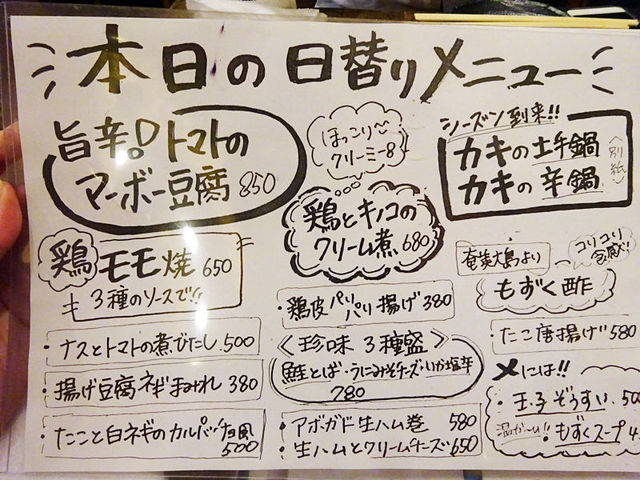 本日の日替りメニュー
旨辛!トマトの
マーボー豆腐 850
鶏モモ焼 650
3種のソースで!!
・ナスとトマトの煮びたし 500
・揚げ豆腐ネギまみれ 380
・たこと白ネギのカルパッチョ風 500
ほっこり
クリーミー
鶏とキノコの
クリーム煮 680
・鶏皮パリパリ揚げ 380
〈珍味 3種盛〉
鮭とば・うにみそチーズ・いか塩辛
780
・アボガド生ハム巻 580
・生ハムとクリームチーズ 650
シーズン到来!!
カキの土手鍋
カキの辛鍋
〈別紙〉
奄美大島より
コリコリ
食感!!
もずく酢
・たこ唐揚げ 580
〆には!!
・玉子ぞうすい
温か〜い!! もずくスープ